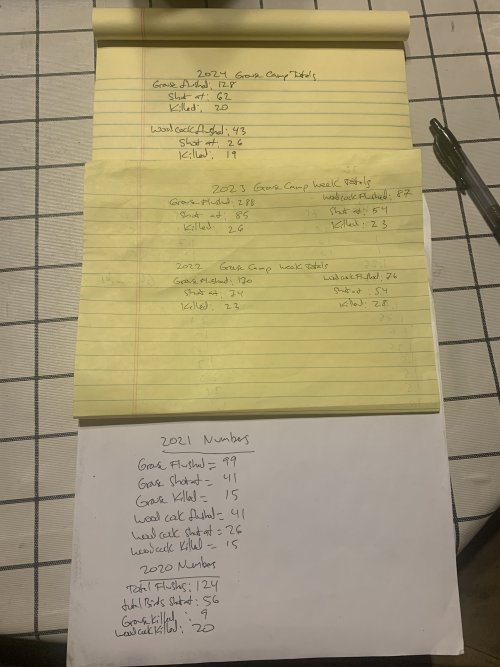 2024 Grouse Camp Totals
Grouse flushed: 128
Shot at: 62
Killed: 20
Woodcock flushed: 43
Shot at: 26
Killed: 19
2023 Grouse Camp Week Totals
Grouse Flushed: 288
Shot at: 85
Killed: 26
Woodcock Flushed: 87
Shot at: 54
Killed: 23
2022 Grouse Camp Week Totals
Grouse Flushed: 170
Shot at: 74
Killed: 23
Woodcock Flushed: 76
Shot at: 54
Killed: 28
2021 Numbers
Grouse Flushed = 99
Grouse Shot at = 41
Grouse Killed = 15
Woodcock flushed = 41
Woodcock shot at = 26
Woodcock Killed = 15
2020 Numbers
Total Flushes: 124
total Birds Shot at: 56
Grouse Killed: 9
Woodcock Killed: 20